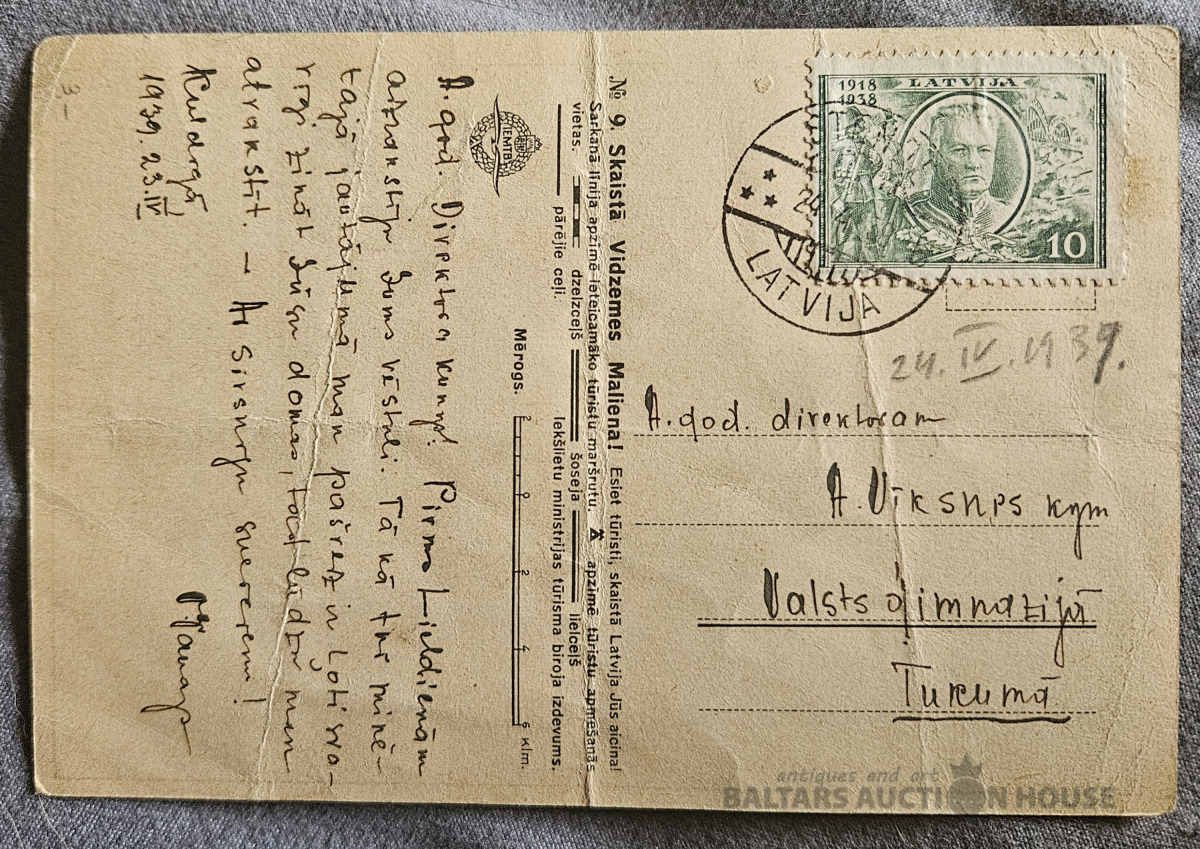 1918
1938
LATVIJA
10
LATVIJA
24.IV.1939.
A. god. direktoram
A. Vīksnes kgm
Valsts ģimnāzijā
Tukumā
№ 9. Skaistā Vidzemes Maliena! Esiet tūristi, skaistā Latvija Jūs aicina!
Sarkanā līnija apzīmē ieteicamāko tūristu maršrutu. apzīmē tūristu apmešanās
vietas. dzelzceļš šoseja lielceļš
pārējie ceļi. Iekšlietu ministrijas tūrisma biroja izdevums.
Mērogs. 2 0 2 4 6 klm.
IEMTB
A. god. Direktora kungs! Pirms Lieldienām
aizrakstīju Jums vēstuli. Tā kā tur minē-
tajā jautājumā man pašreiz ir ļoti sva-
rīgi zināt Jūsu domas, tad lūdzu man
atrakstīt. – Ar sirsnīgu sveicienu!
Kuldīgā
1939. 23.IV
3-
antiques and art
BALTARS AUCTION HOUSE